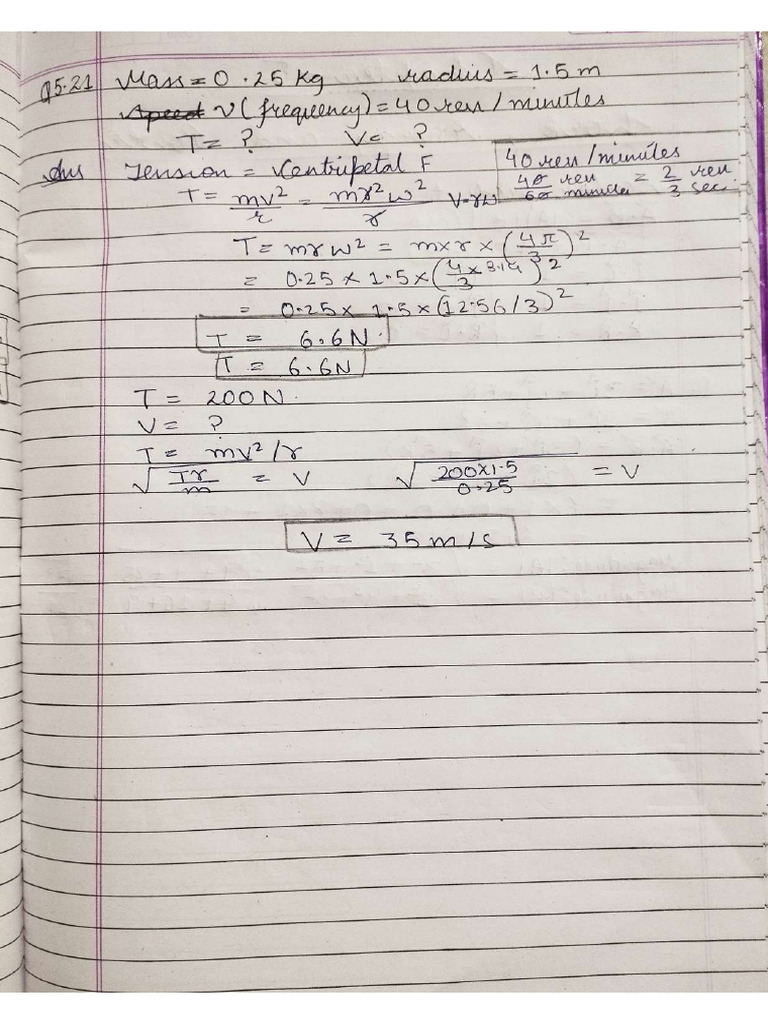 Q5.21 Mass = 0.25 Kg radius = 1.5 m
Speed ν (frequency) = 40 rev / minutes
T = ? V = ?
Ans Tension = Centripetal F
40 rev / minutes
40/60 rev/minutes = 2/3 rev/sec.
T = mv²/r = mr²ω²/r V=rω
T = mrω² = m×r×(4π/3)²
= 0.25 × 1.5×(4×3.14/3)²
= 0.25× 1.5×(12.56/3)²
T = 6.6N.
T = 6.6N
T = 200N.
V = ?
T = mV²/r
√Tr/m = V √200×1.5/0.25 = V
V = 35 m/s